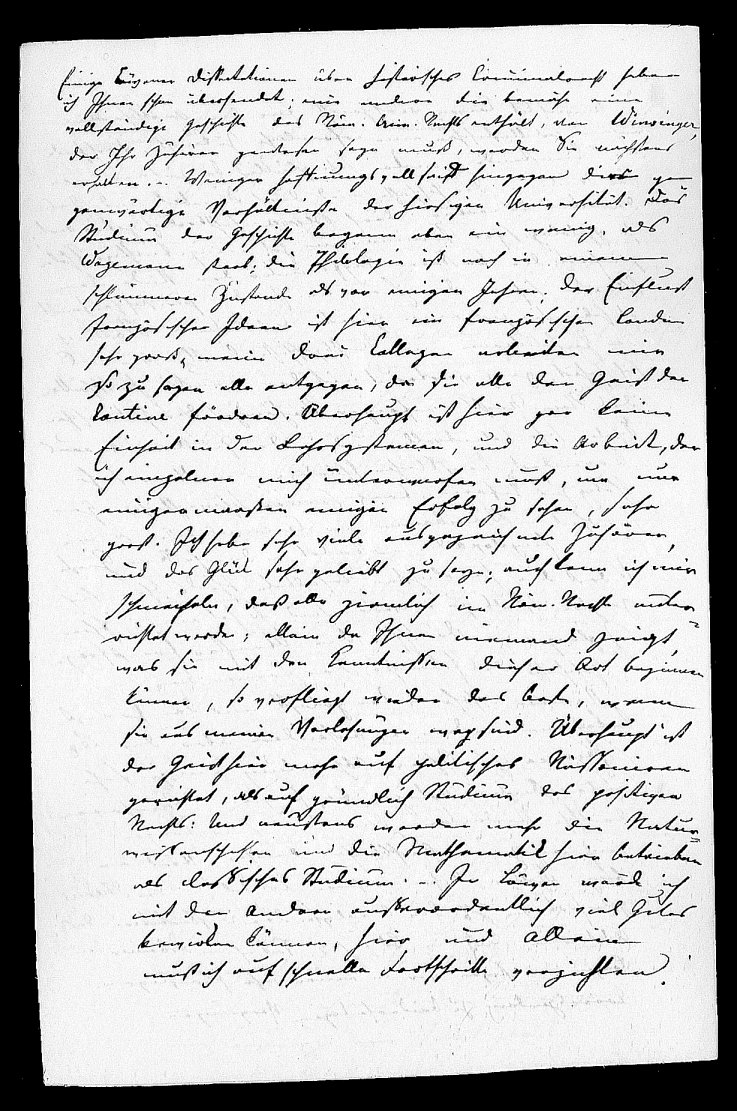 Einige Löwener Dissertationen über historisches Criminalrecht habe
ich Ihnen schon übersendet; eine andere die beinahe eine
vollständige Geschichte des Röm. Crim. Rechts enthält, von
der Ihr Zuhörer gewesen seyn muß, werden Sie nächstens
erhalten. – Weniger hoffnungsvoll sind hingegen die ge-
genwärtige Verhältnisse der hiesigen Universität. Das
Studium der Geschichte begann eben ein wenig, als
Wagemann starb; die Philologie ist noch in einem
schlimmern Zustande als vor einigen Jahren. Der Einfluß
französischer Ideen ist hier im französischen Lande
sehr groß; meine drei Collegen arbeiten mir
so zu sagen alle entgegen, da sie alle den Geist der
Routine fördern. Überhaupt ist hier gar keine
Einheit in den Lehrsystemen, und die Arbeit, der
ich einzelner mich unterwerfen muß, um nur
einigermaaßen einigen Erfolg zu sehen, sehr
groß. Ich habe sehr viele ausgezeichnete Zuhörer,
und das Glück sehr geliebt zu seyn; auch kann ich mir
schmeicheln, daß alle ziemlich im Röm. Rechte unter-
richtet werden; allein da Ihnen niemand zeigt,
was sie mit den Kenntnissen dieser Art beginnen
können, so verfliegt wieder das Beste, wenn
sie aus meinen Vorlesungen weg sind. Überhaupt ist
der Geist hier mehr auf politisches Räsoniren
gerichtet, als auf gründlich Studium des positiven
Rechts: Und neustens werden mehr die Natur-
wissenschaften und die Mathematik hier betrieben
als classisches Studium. – In Löwen würde ich
mit den Andern außerordentlich viel Gutes
bewirken können, hier und allein
muß ich auf schnelle Fortschritte verzichten.